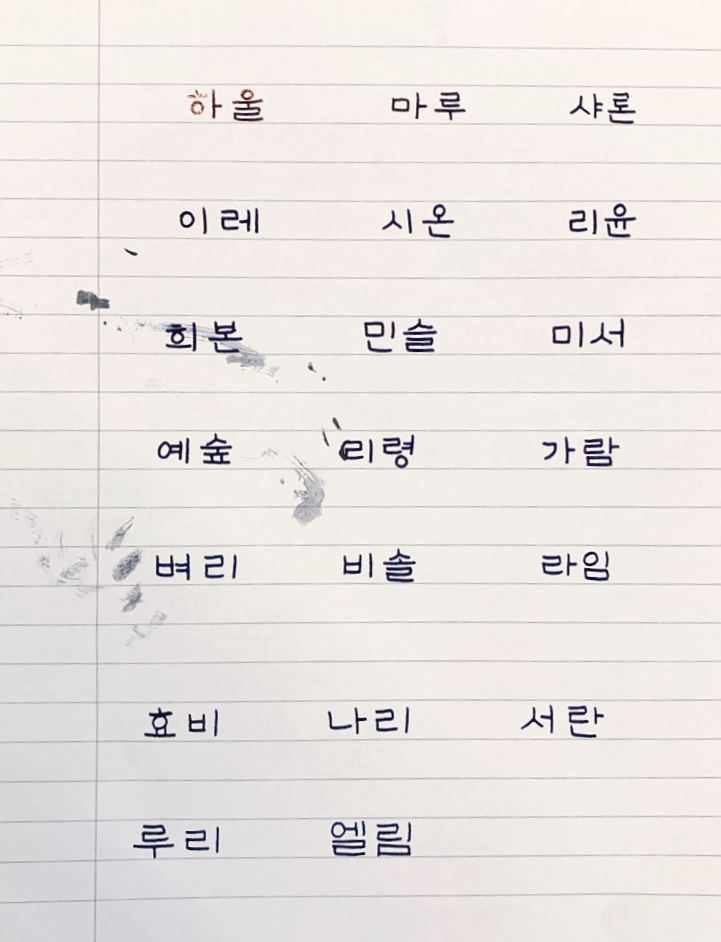 하울 마루 샤론
이레 시온 리윤
희본 민슬 미서
예숲 리령 가람
벼리 비솔 라임
효비 나리 서란
루리 엘림